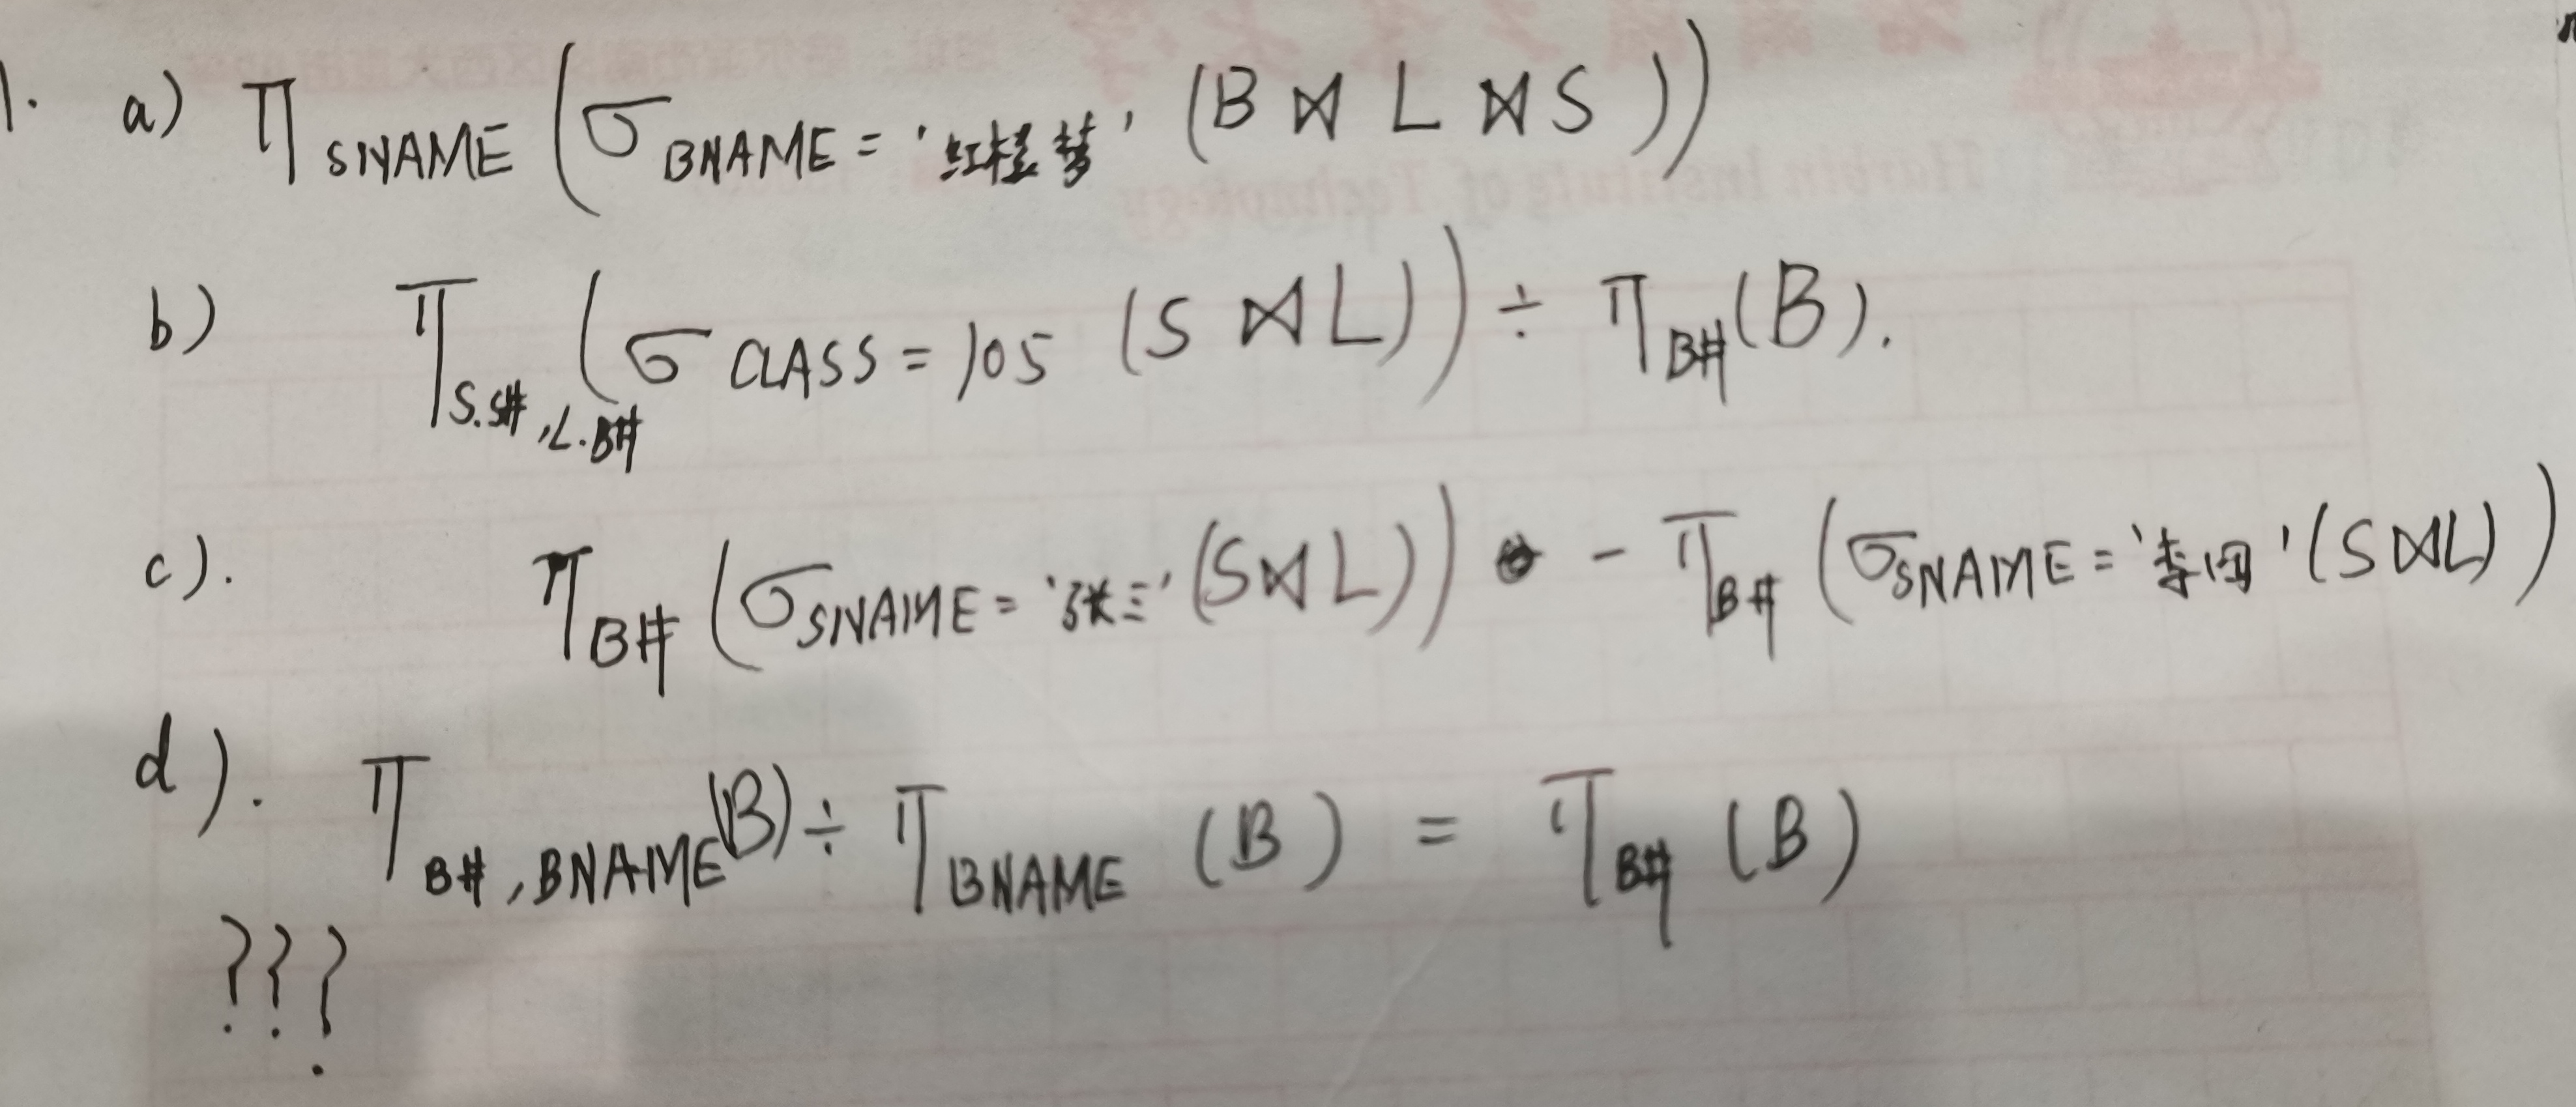 1. a) π SNAME (σ BNAME = '红楼梦' (B ⋈ L ⋈ S))
b) π S.S#, L.B# (σ CLASS = 105 (S ⋈ L)) ÷ π B# (B).
c). π B# (σ SNAME = '张三' (S⋈L)) - π B# (σ SNAME = '李四' (S⋈L))
d). π B#, BNAME (B) ÷ π BNAME (B) = π B# (B)
???